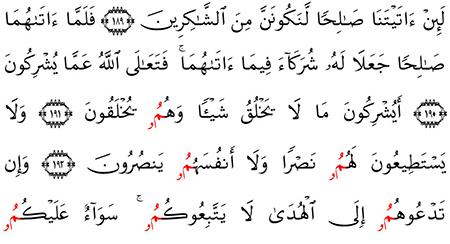 لَئِنْ ءَاتَيْتَنَا صَٰلِحًا لَّنَكُونَنَّ مِنَ الشَّٰكِرِينَ ﴿١٨٩﴾ فَلَمَّا ءَاتَىٰهُمَا
صَٰلِحًا جَعَلَا لَهُۥ شُرَكَآءَ فِيمَا ءَاتَىٰهُمَا ۚ فَتَعَٰلَى اللَّهُ عَمَّا يُشْرِكُونَ
﴿١٩٠﴾ أَيُشْرِكُونَ مَا لَا يَخْلُقُ شَيْـًٔا وَهُمُۥ يُخْلَقُونَ ﴿١٩١﴾ وَلَا
يَسْتَطِيعُونَ لَهُمُۥ نَصْرًا وَلَا أَنفُسَهُمُۥ يَنصُرُونَ ﴿١٩٢﴾ وَإِن
تَدْعُوهُمُۥ إِلَى الْهُدَىٰ لَا يَتْبَعُوكُمُۥ ۚ سَوَآءٌ عَلَيْكُمُۥ